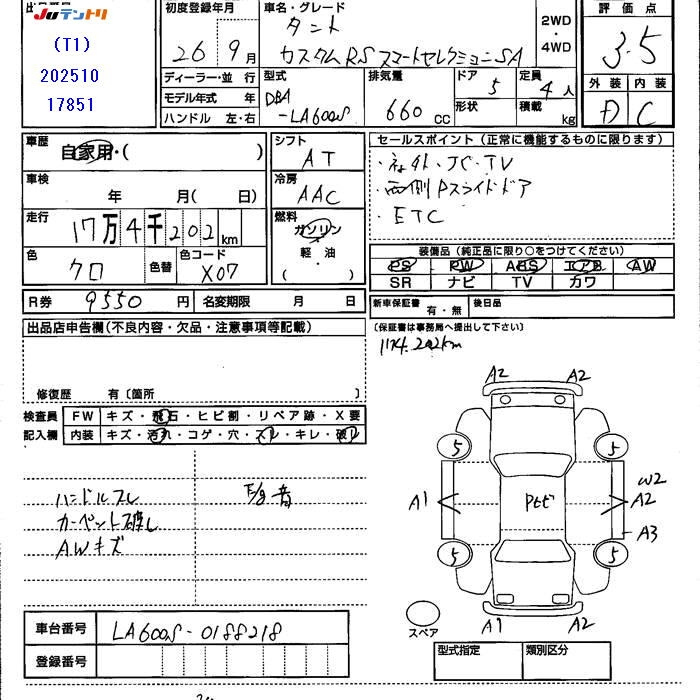 出品番号
JUテントリ
(T1)
202510
17851
初度登録年月
26年 9月
車名・グレード
タント
カスタムRS スマートセレクションSA
2WD
・
4WD
評価点
3.5
ディーラー・並行
モデル年式 年
ハンドル 左・右
型式
DBA
-LA600S
排気量
660 cc
ドア 5
形状
定員
4人
積載 kg
外装 内装
D C
車歴
自家用・( )
シフト
AT
セールスポイント(正常に機能するものに限ります)
・社外、JC、TV
・両側Pスライドドア
・ETC
車検
年 月( 日)
冷房
AAC
走行
17万4千202km
燃料
ガソリン
軽油
( ・ )
色
クロ
色替
色コード
X07
装備品(純正品に限り○をつけてください)
PS PW ABS エアB AW
SR ナビ TV カワ
R券 9550円
名変期限 月 日
新車保証書 有・無
後日品
(保証書は事務局へ提出して下さい)
174,202km
出品店申告欄(不良内容・欠品・注意事項等記載)
修復歴 有〔箇所 〕
検査員
記入欄
FW キズ・飛石・ヒビ割・リペア跡・X要
内装 キズ・汚れ・コゲ・穴・スレ・キレ・破レ
ハンドルスレ
カーペント破し
AWキズ
音
A2 A2
5 5
A1
Pセビ
W2
A2
A3
5 5
A1 A2
スペア
車台番号 LA600S-0188218
登録番号
型式指定 類別区分